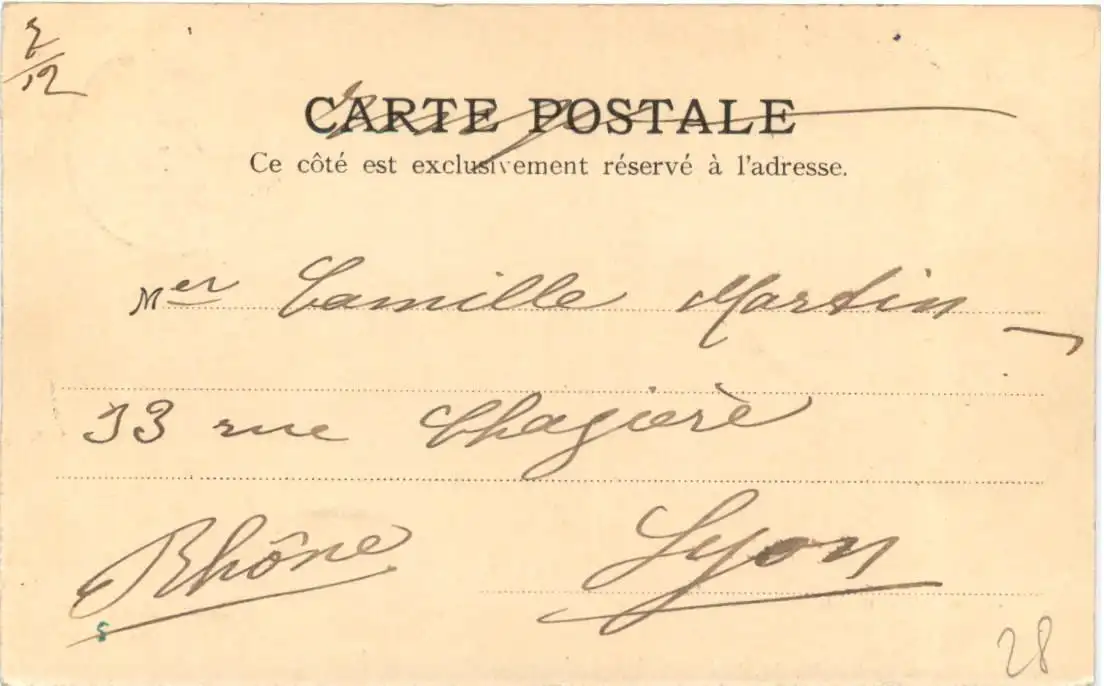 CARTE POSTALE
Ce côté est exclusivement réservé à l'adresse.
Mer Camille Martin
33 rue Chagière
Rhône Lyon
28